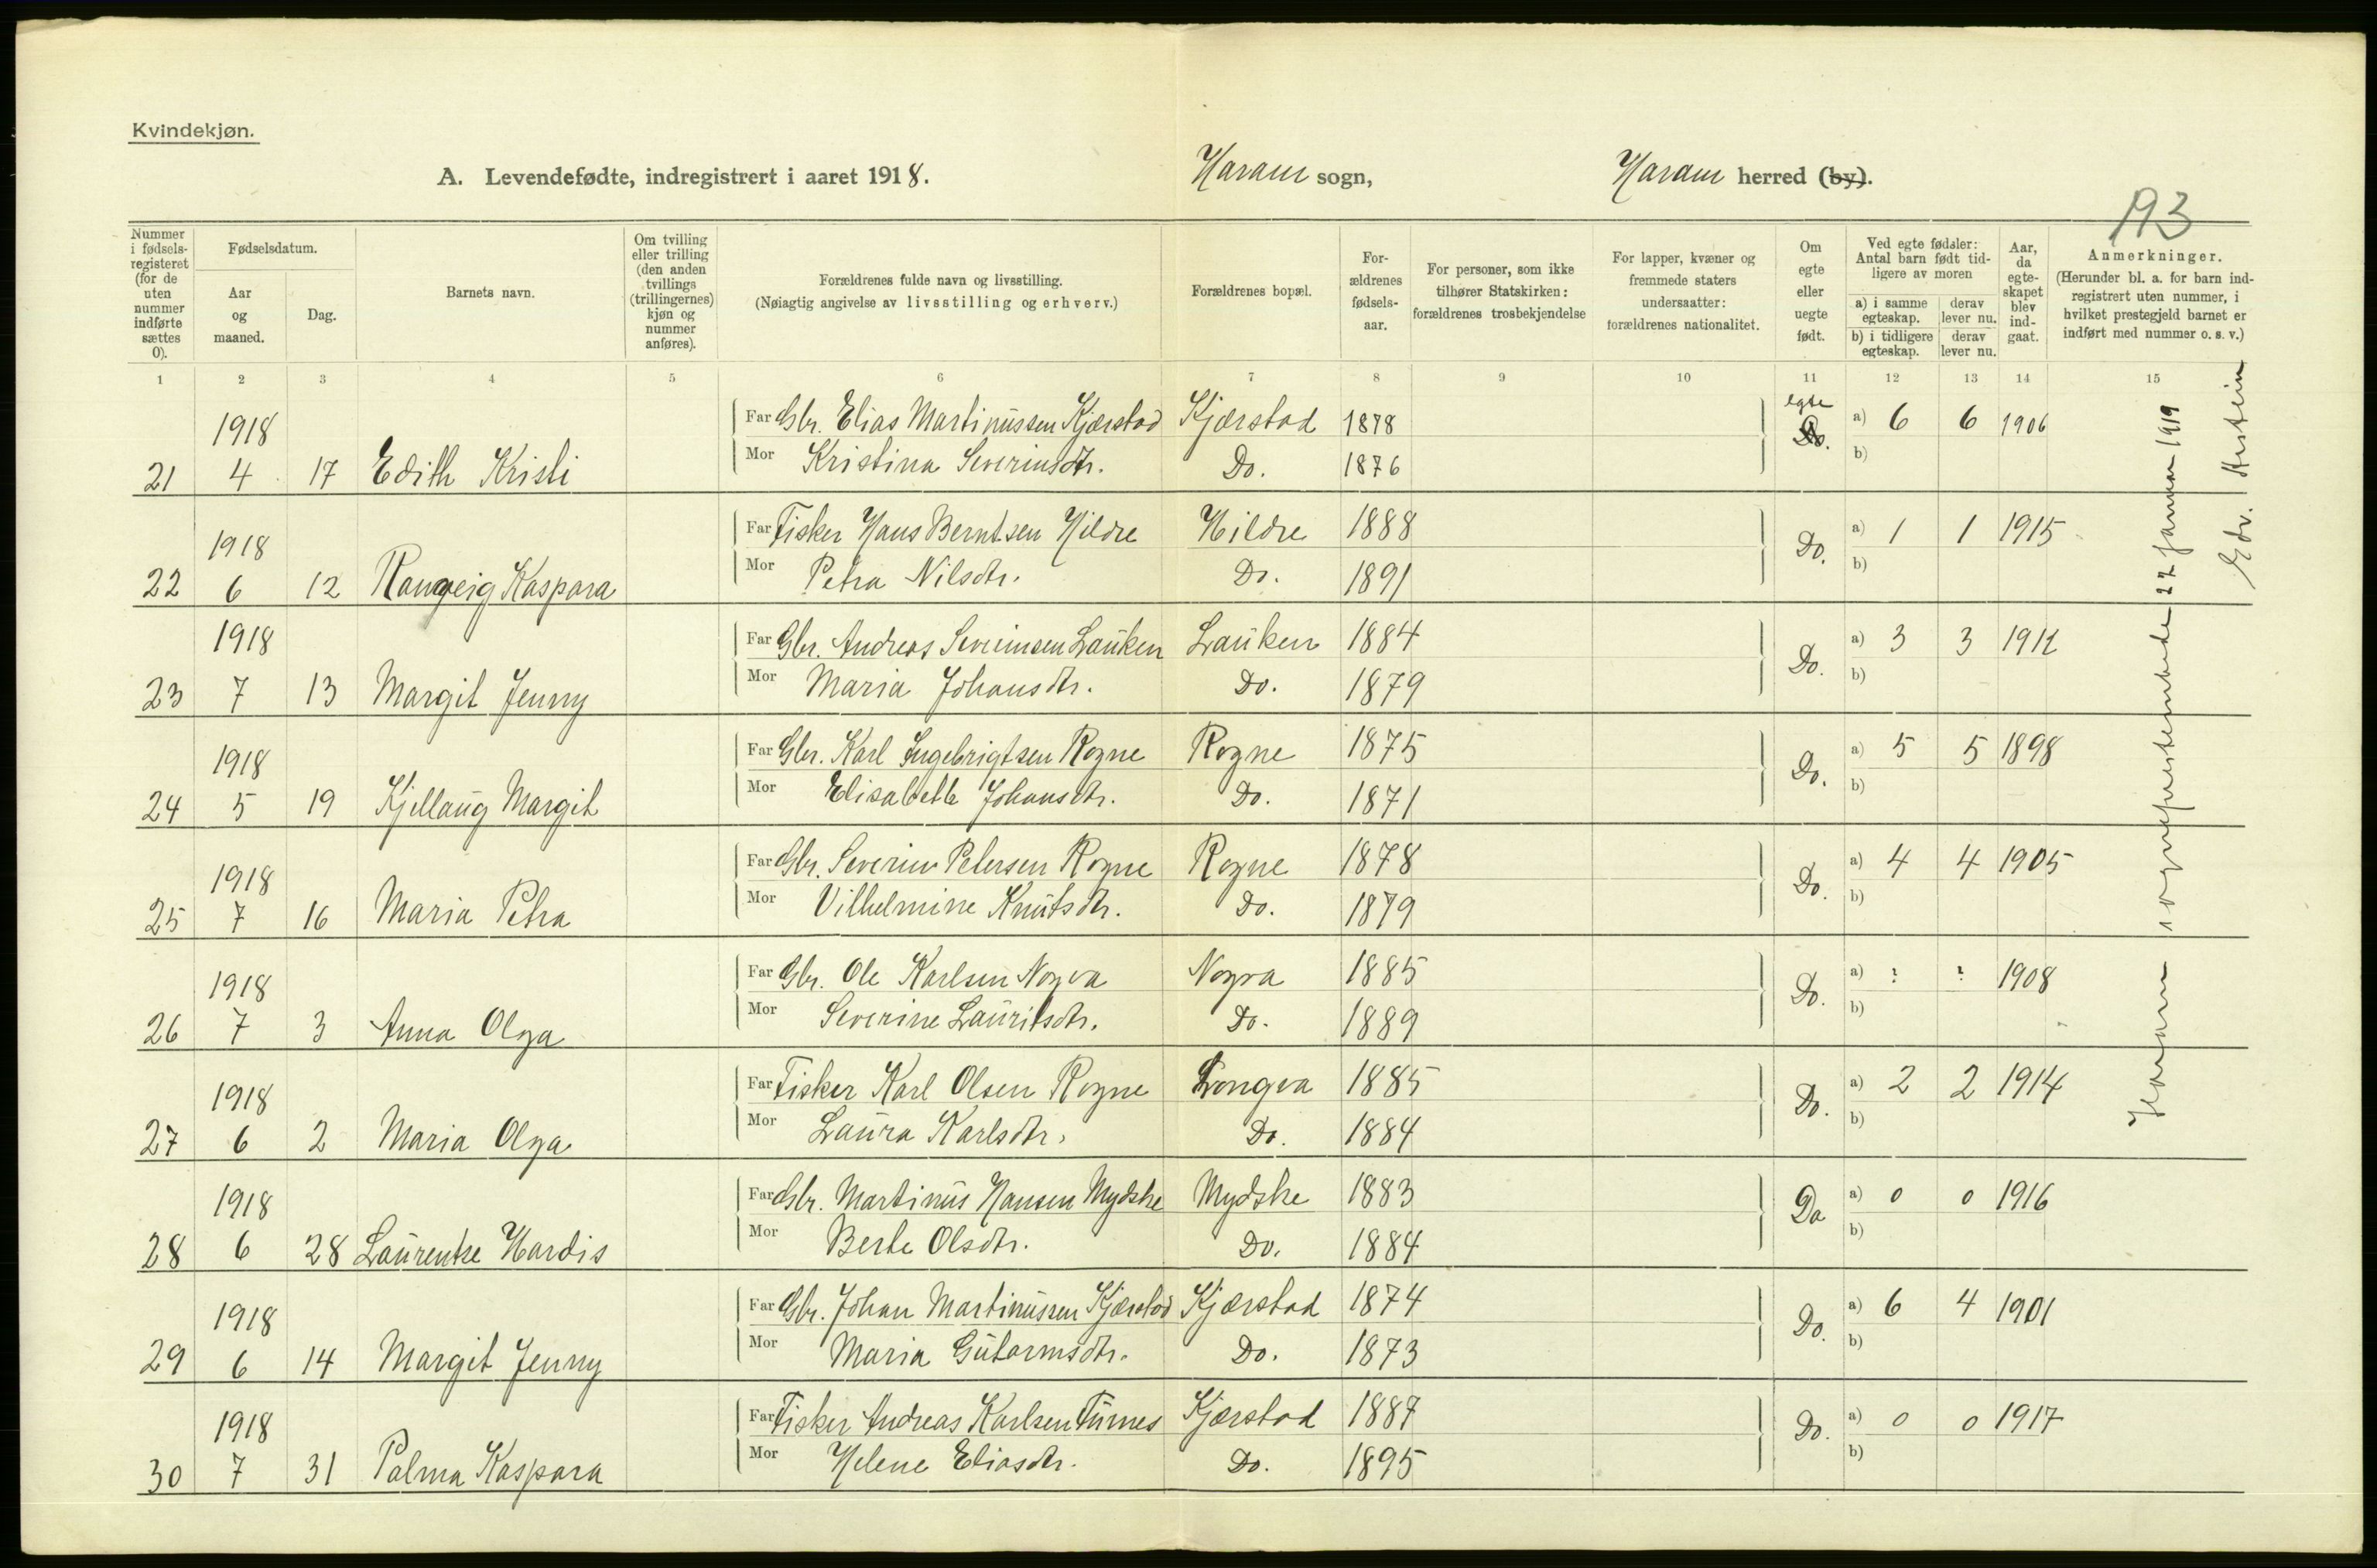 Kvindekjøn.
A. Levendefødte, indregistrert i aaret 1918. Haram sogn, Haram herred (by).
193
Nummer i fødsels-registeret (for de uten nummer indførte sættes 0).
Fødselsdatum.
Aar og maaned.
Dag.
Barnets navn.
Om tvilling eller trilling (den anden tvillings (trillingernes) kjøn og nummer anføres).
Forældrenes fulde navn og livsstilling.
(Nøiagtig angivelse av livsstilling og erhverv.)
Forældrenes bopæl.
For-ældrenes fødsels-aar.
For personer, som ikke tilhører Statskirken: forældrenes trosbekjendelse
For lapper, kvæner og fremmede staters undersaatter: forældrenes nationalitet.
Om egte eller uegte født.
Ved egte fødsler: Antal barn født tid-ligere av moren
a) i samme egteskap. derav lever nu.
b) i tidligere egteskap. derav lever nu.
Aar, da egte-skapet blev ind-gaat.
Anmerkninger.
(Herunder bl. a. for barn ind-registrert uten nummer, i hvilket prestegjeld barnet er indført med nummer o. s. v.)
1 2 3 4 5 6 7 8 9 10 11 12 13 14 15
1918 Far Gbr. Elias Martinussen Kjærstad Kjærstad 1878 egte a) 6 6 1906
21 4 17 Edith Kristi Mor Kristina Severinsdtr. Do. 1876 Do. b)
1918 Far Fisker Hans Berntsen Hildre Hildre 1888 Do. a) 1 1 1915
22 6 12 Rangveig Kaspara Mor Petra Nilsdtr. Do. 1891 b)
1918 Far Gbr. Andreas Severinsen Lauken Lauken 1884 Do. a) 3 3 1912
23 7 13 Margit Jenny Mor Maria Johansdtr. Do. 1879 b)
1918 Far Gbr. Karl Ingebrigtsen Rogne Rogne 1875 Do. a) 5 5 1898
24 5 19 Kjellaug Margit Mor Elisabeth Johansdtr. Do. 1871 b)
1918 Far Gbr. Severin Petersen Rogne Rogne 1878 Do. a) 4 4 1905
25 7 16 Maria Petra Mor Vilhelmine Knutsdtr. Do. 1879 b)
1918 Far Gbr. Ole Karlsen Nogva Nogva 1885 Do. a) ? ? 1908
26 7 3 Anna Olga Mor Severine Lauritsdtr. Do. 1889 b)
1918 Far Fisker Karl Olsen Rogne Longva 1885 Do. a) 2 2 1914
27 6 2 Maria Olga Mor Laura Karlsdtr. Do. 1884 b)
1918 Far Gbr. Martinus Hansen Mydske Mydske 1883 Do a) 0 0 1916
28 6 28 Laurentse Hardis Mor Berte Olsdtr. Do. 1884 b)
1918 Far Gbr. Johan Martinussen Kjærstad Kjærstad 1874 Do. a) 6 4 1901
29 6 14 Margit Jenny Mor Maria Gutormsdtr. Do. 1873 b)
1918 Far Fisker Andreas Karlsen Furnes Kjærstad 1887 Do. a) 0 0 1917
30 7 31 Palma Kaspara Mor Helene Eliasdtr. Do. 1895 b)
Haram sogneprestembede 22 januar 1919